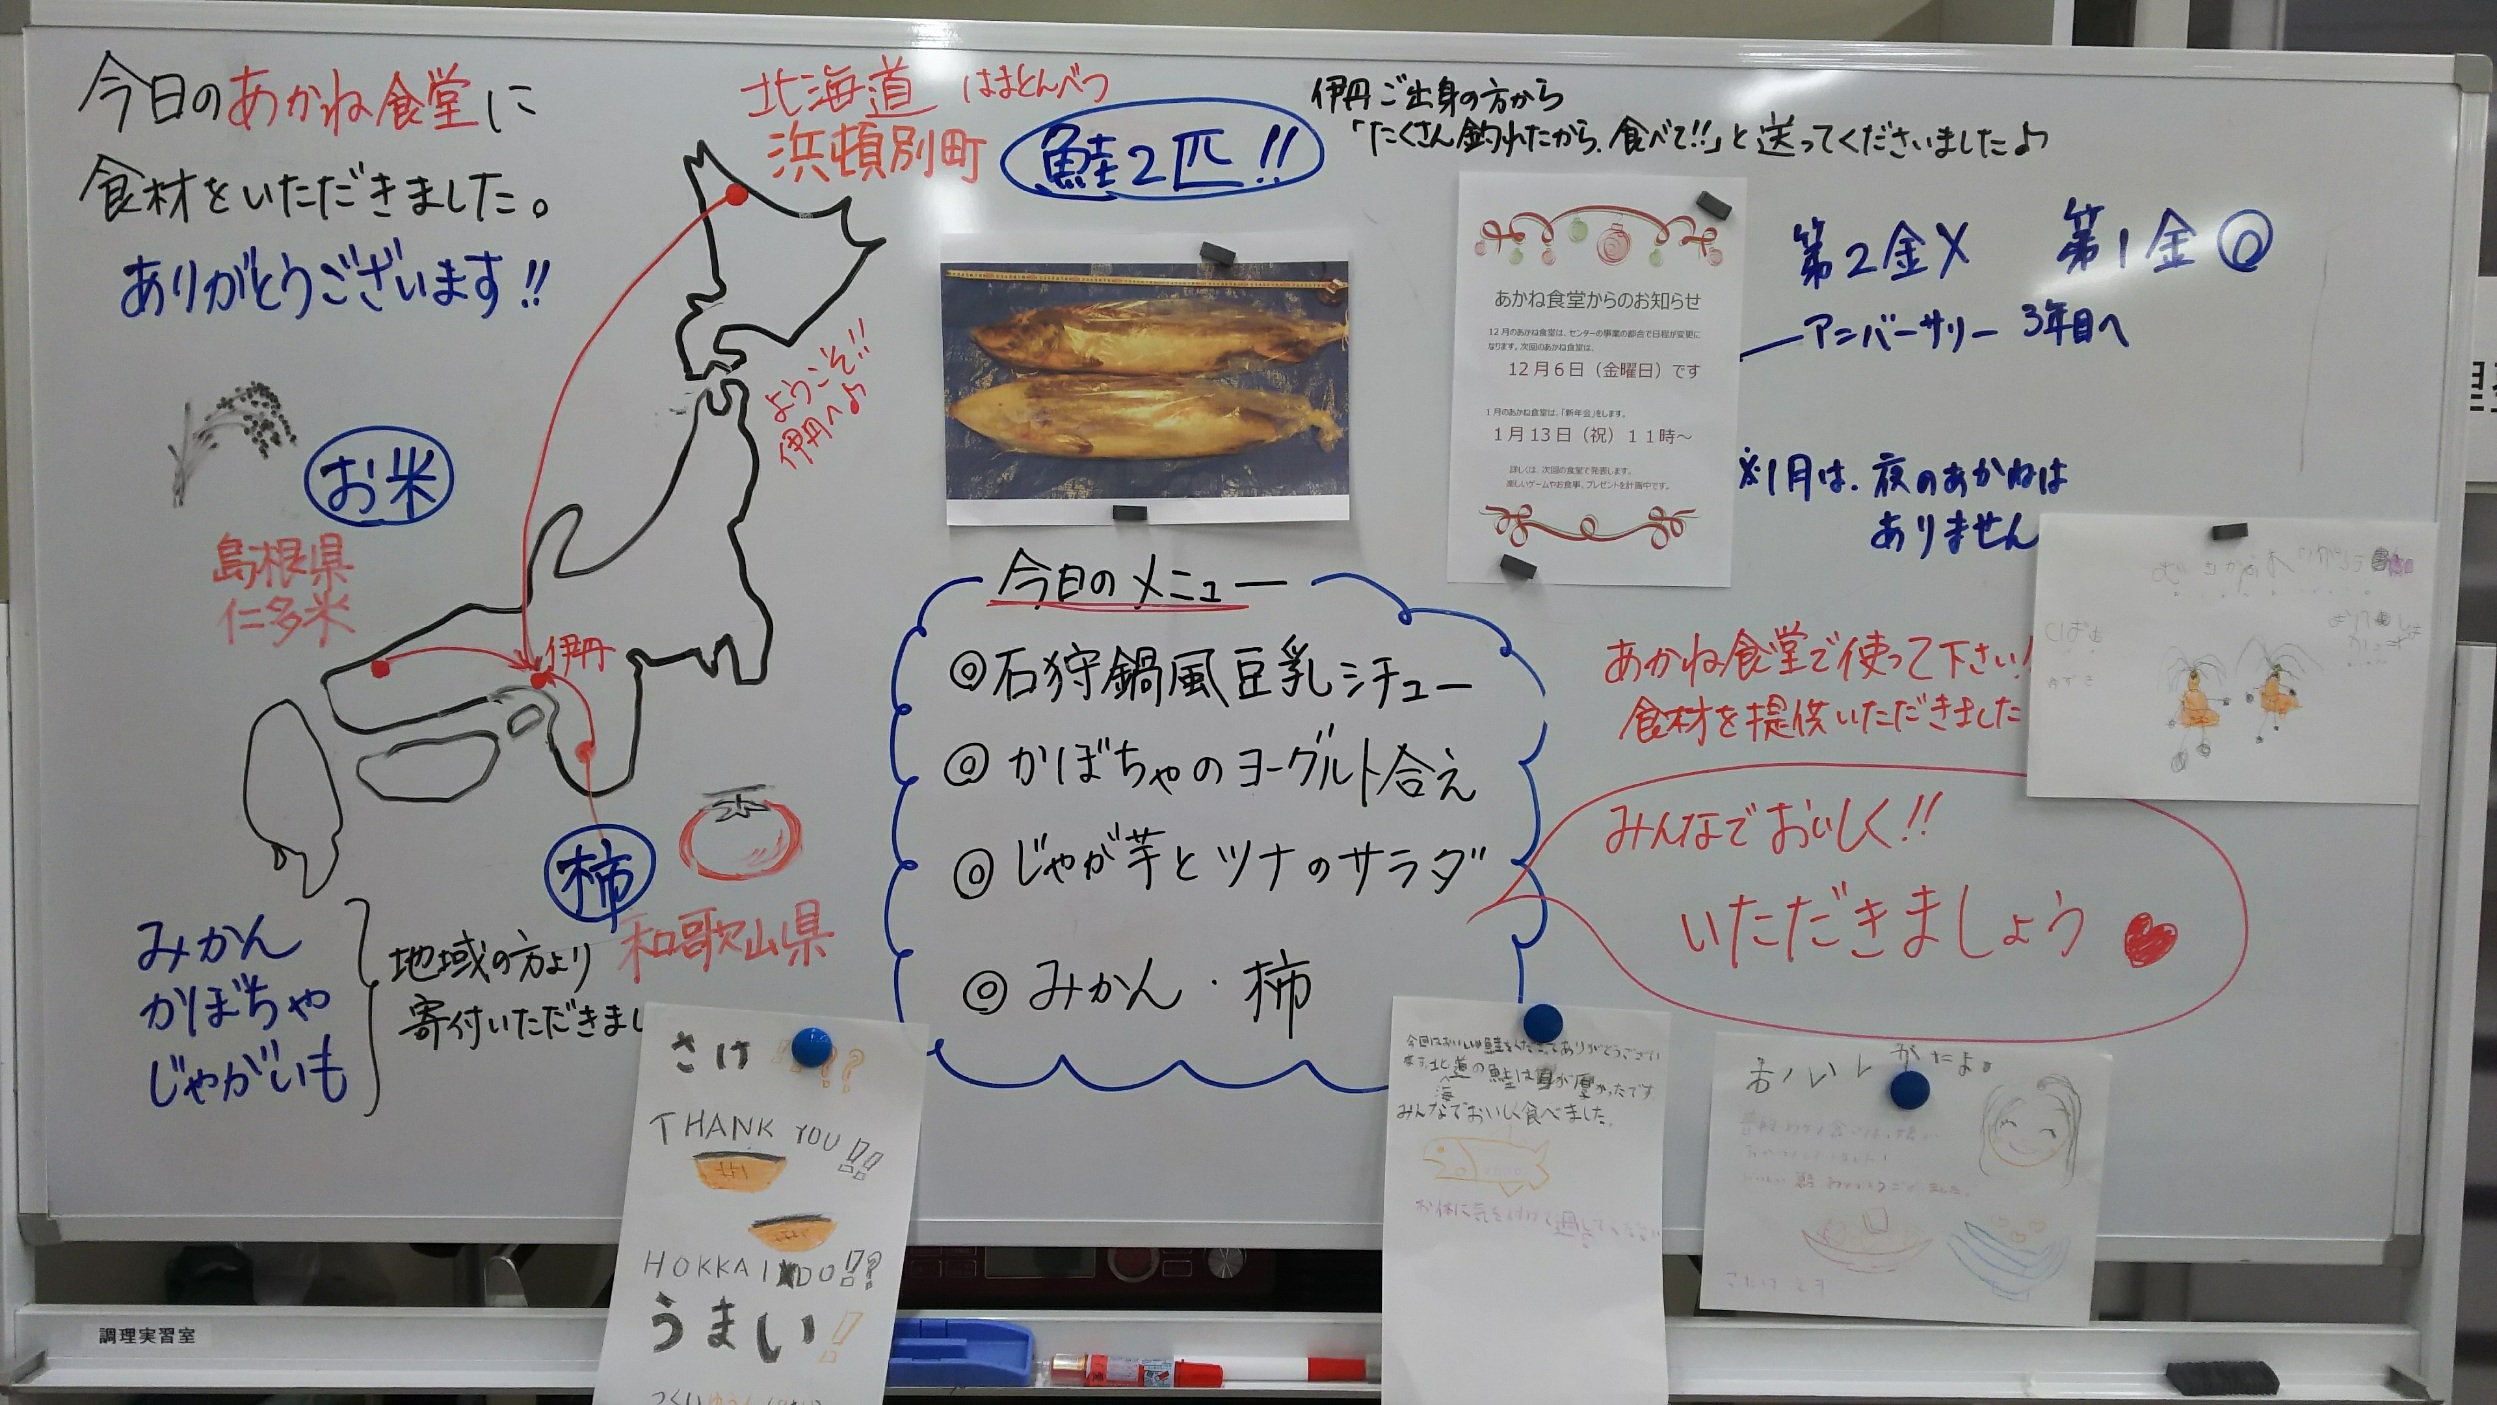 今日のあかね食堂に
食材をいただきました。
ありがとうございます!!
北海道 はまとんべつ
浜頓別町
鮭2匹!!
伊丹ご出身の方から
「たくさん釣れたから、食べて!!」と送ってくださいましたよ♪
ようこそ!!
伊丹へ♪
お米
島根県
仁多米
伊丹
柿
和歌山県
みかん
かぼちゃ
じゃがいも
地域の方より
寄付いただきまし
あかね食堂からのお知らせ
12月のあかね食堂は、センターの事業の都合で日程が変更に
なります。次回のあかね食堂は、
12月6日(金曜日)です
1月のあかね食堂は、「新年会」をします。
1月13日(祝)11時~
詳しくは、次回の食堂で発表します。
楽しいゲームやお食事、プレゼントを計画中です。
第2金× 第1金◎
アニバーサリー 3年目へ
※1月は、夜のあかねは
ありません
今日のメニュー
◎石狩鍋風豆乳シチュー
◎かぼちゃのヨーグルト合え
◎じゃが芋とツナのサラダ
◎みかん・柿
あかね食堂で使って下さい!
食材を提供いただきました
みんなでおいしく!!
いただきましょう
さけ
THANK YOU!!
HOKKAIDO!?
うまい!
今回はおいしい鮭をいただきありがとうござい
ます。北海道の鮭は身が厚かったです
みんなでおいしく食べました。
お体に気を付けて過して
おいしかたよ。
調理実習室